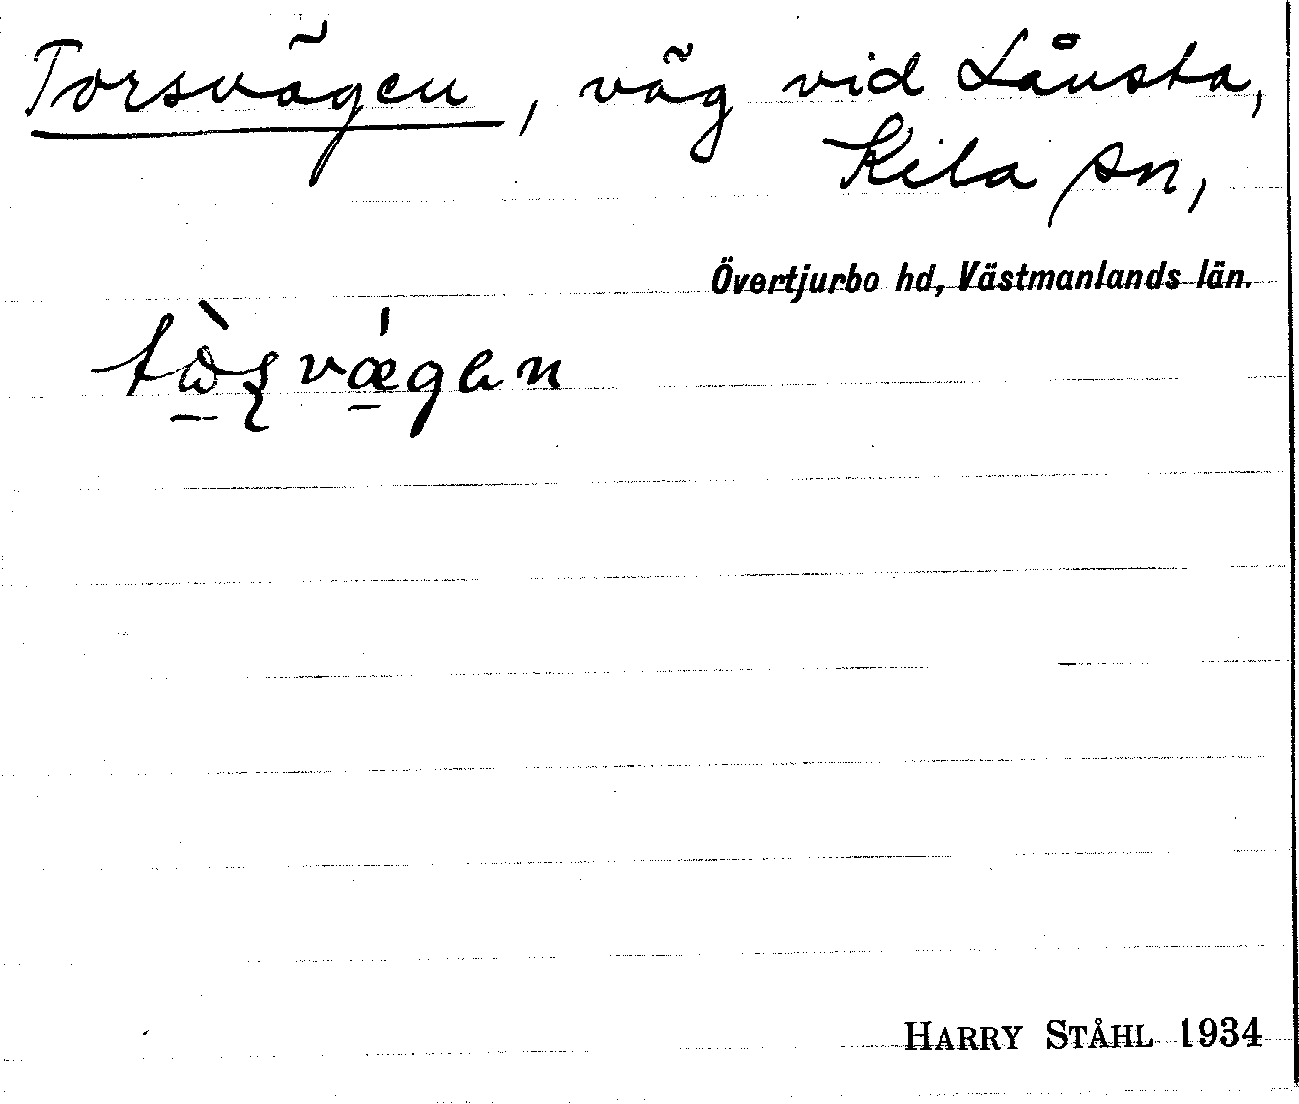 Torsvägen, väg vid Lånsta,
Kila sn,
Övertjurbo hd, Västmanlands län.
HARRY STÅHL 1934